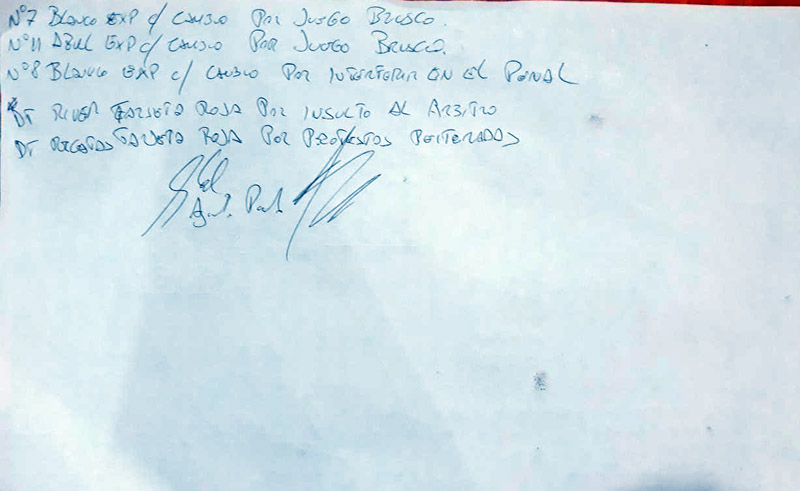 Nº7 BLANCO EXP c/ CAMBIO POR JUEGO BRUSCO.
Nº11 AZUL EXP c/ CAMBIO POR JUEGO BRUSCO.
Nº8 BLANCO EXP c/ CAMBIO POR INTERFERIR EN EL PENAL
DT RIVER TARJETA ROJA POR INSULTO AL ARBITRO
DT TARJETA ROJA POR REITERADAS